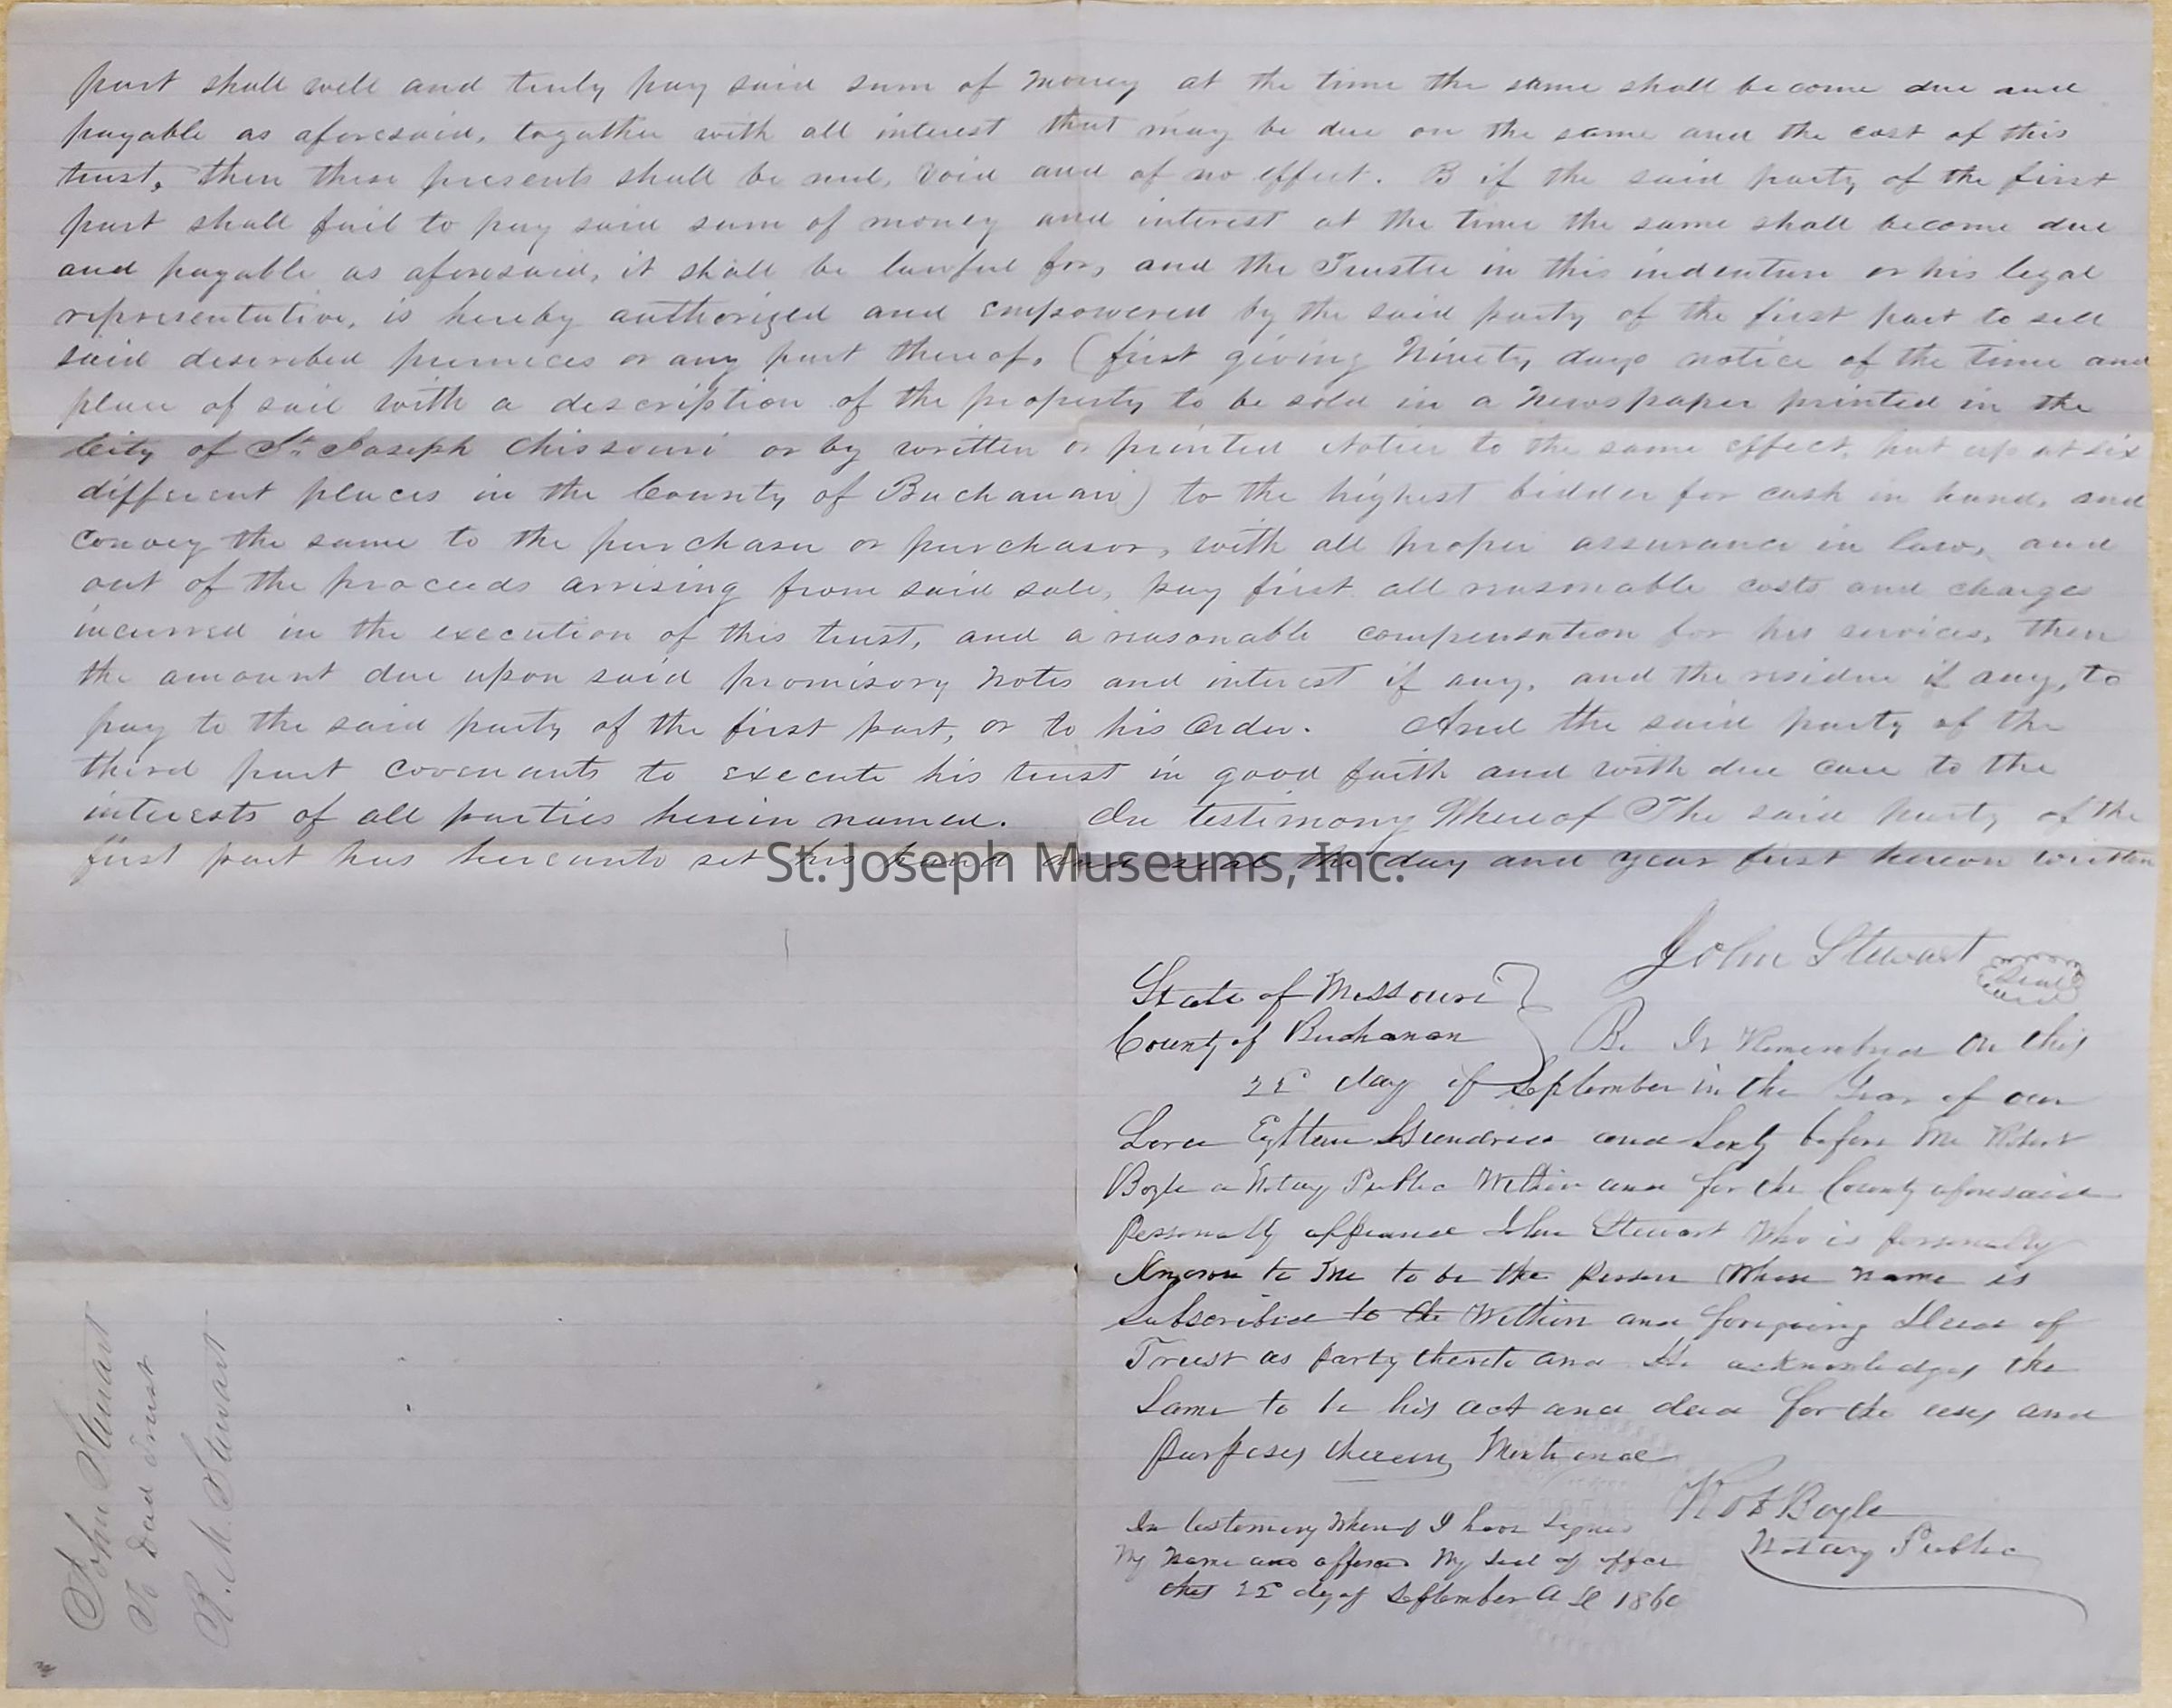 part shall well and truly pay said sum of money at the time the same shall become due and
payable as aforesaid, togather with all interest that may be due on the same and the cost of this
trust, then these presents shall be nul, Void and of no effect. B if the said party of the first
part shall fail to pay said sum of money and interest at the time the same shall become due
and payable as aforesaid, it shall be lawful for, and the Trustee in this indenture or his legal
representative, is hereby authorized and empowered by the said party of the first part to sell
said described premices or any part thereof, (first giving Ninety days notice of the time and
place of sail with a description of the property to be sold in a Newspaper printed in the
City of St. Joseph Missouri or by written or printed Notice to the same effect, put up at six
different places in the County of Buchanan) to the highest bidder for cash in hand, and
convey the same to the purchaser or purchasor, with all proper assurance in law, and
out of the proceeds arrising from said sale, pay first all reasonable costs and charges
incurred in the execution of this trust, and a reasonable compensation for his services, then
the amount due upon said promisory Notes and interest if any, and the residue if any, to
pay to the said party of the first part, or to his Order. And the said party of the
third part covenants to execute his trust in good faith and with due care to the
interests of all parties herein named. In testimony Whereof The said party of the
first part has hereunto set his hand and seal the day and year first hereon written
St. Joseph Museums, Inc.
John Stewart Seal
State of Missouri
County of Buchanan Be It Remembred On this
22d day of September in the Year of our
Lord Eighteen Hundred and Sixty before me Robert
Boyle a Notary Public Within and for the County aforesaid
Personally appeared John Stewart Who is personally
Known to Me to be the person Whose name is
subscribed to the Within and foregoing Deed of
Trust as party thereto and He acknowledges the
Same to be his act and deed for the uses and
purposes therein Mentioned
Rob Boyle
Notary Public
In testimony Whereof I have signed
My Name and affixed My Seal of office
this 22d day of September A D 1860
John Stewart
To Deed Trust
R. M. Stewart